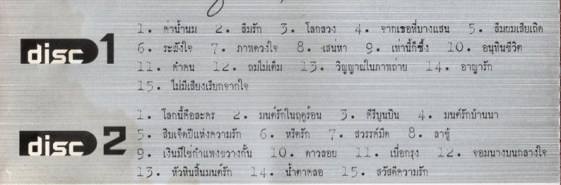 disc 1
1. ค่าน้ำนม 2. ลืมรัก 3. โลกลวง 4. จากเธอที่บางแสน 5. ลืมผมเสียเถิด
6. ระฆังใจ 7. ภาพดวงใจ 8. เสน่หา 9. เท่านี้ก็ซึ้ง 10. อนุทินชีวิต
11. ค่าคน 12. ถมไม่เต็ม 13. วิญญาณในภาพถ่าย 14. อาญารัก
15. ไม่มีเสียงเรียกจากใจ
disc 2
1. โลกนี้คือละคร 2. มนต์รักในฤดูร้อน 3. คีรีบูนบิน 4. มนต์รักบ้านนา
5. สิบเจ็ดปีแห่งความรัก 6. ทรีดรัก 7. สวรรค์มืด 8. ลาชู้
9. เงินมิใช่กำแพงขวางกั้น 10. ดาวลอย 11. เนื้อทรุง 12. จอมนางบนกลางใจ
13. หัวหินสิ้นมนต์รัก 14. น้ำตาคลอ 15. สวัสดีความรัก